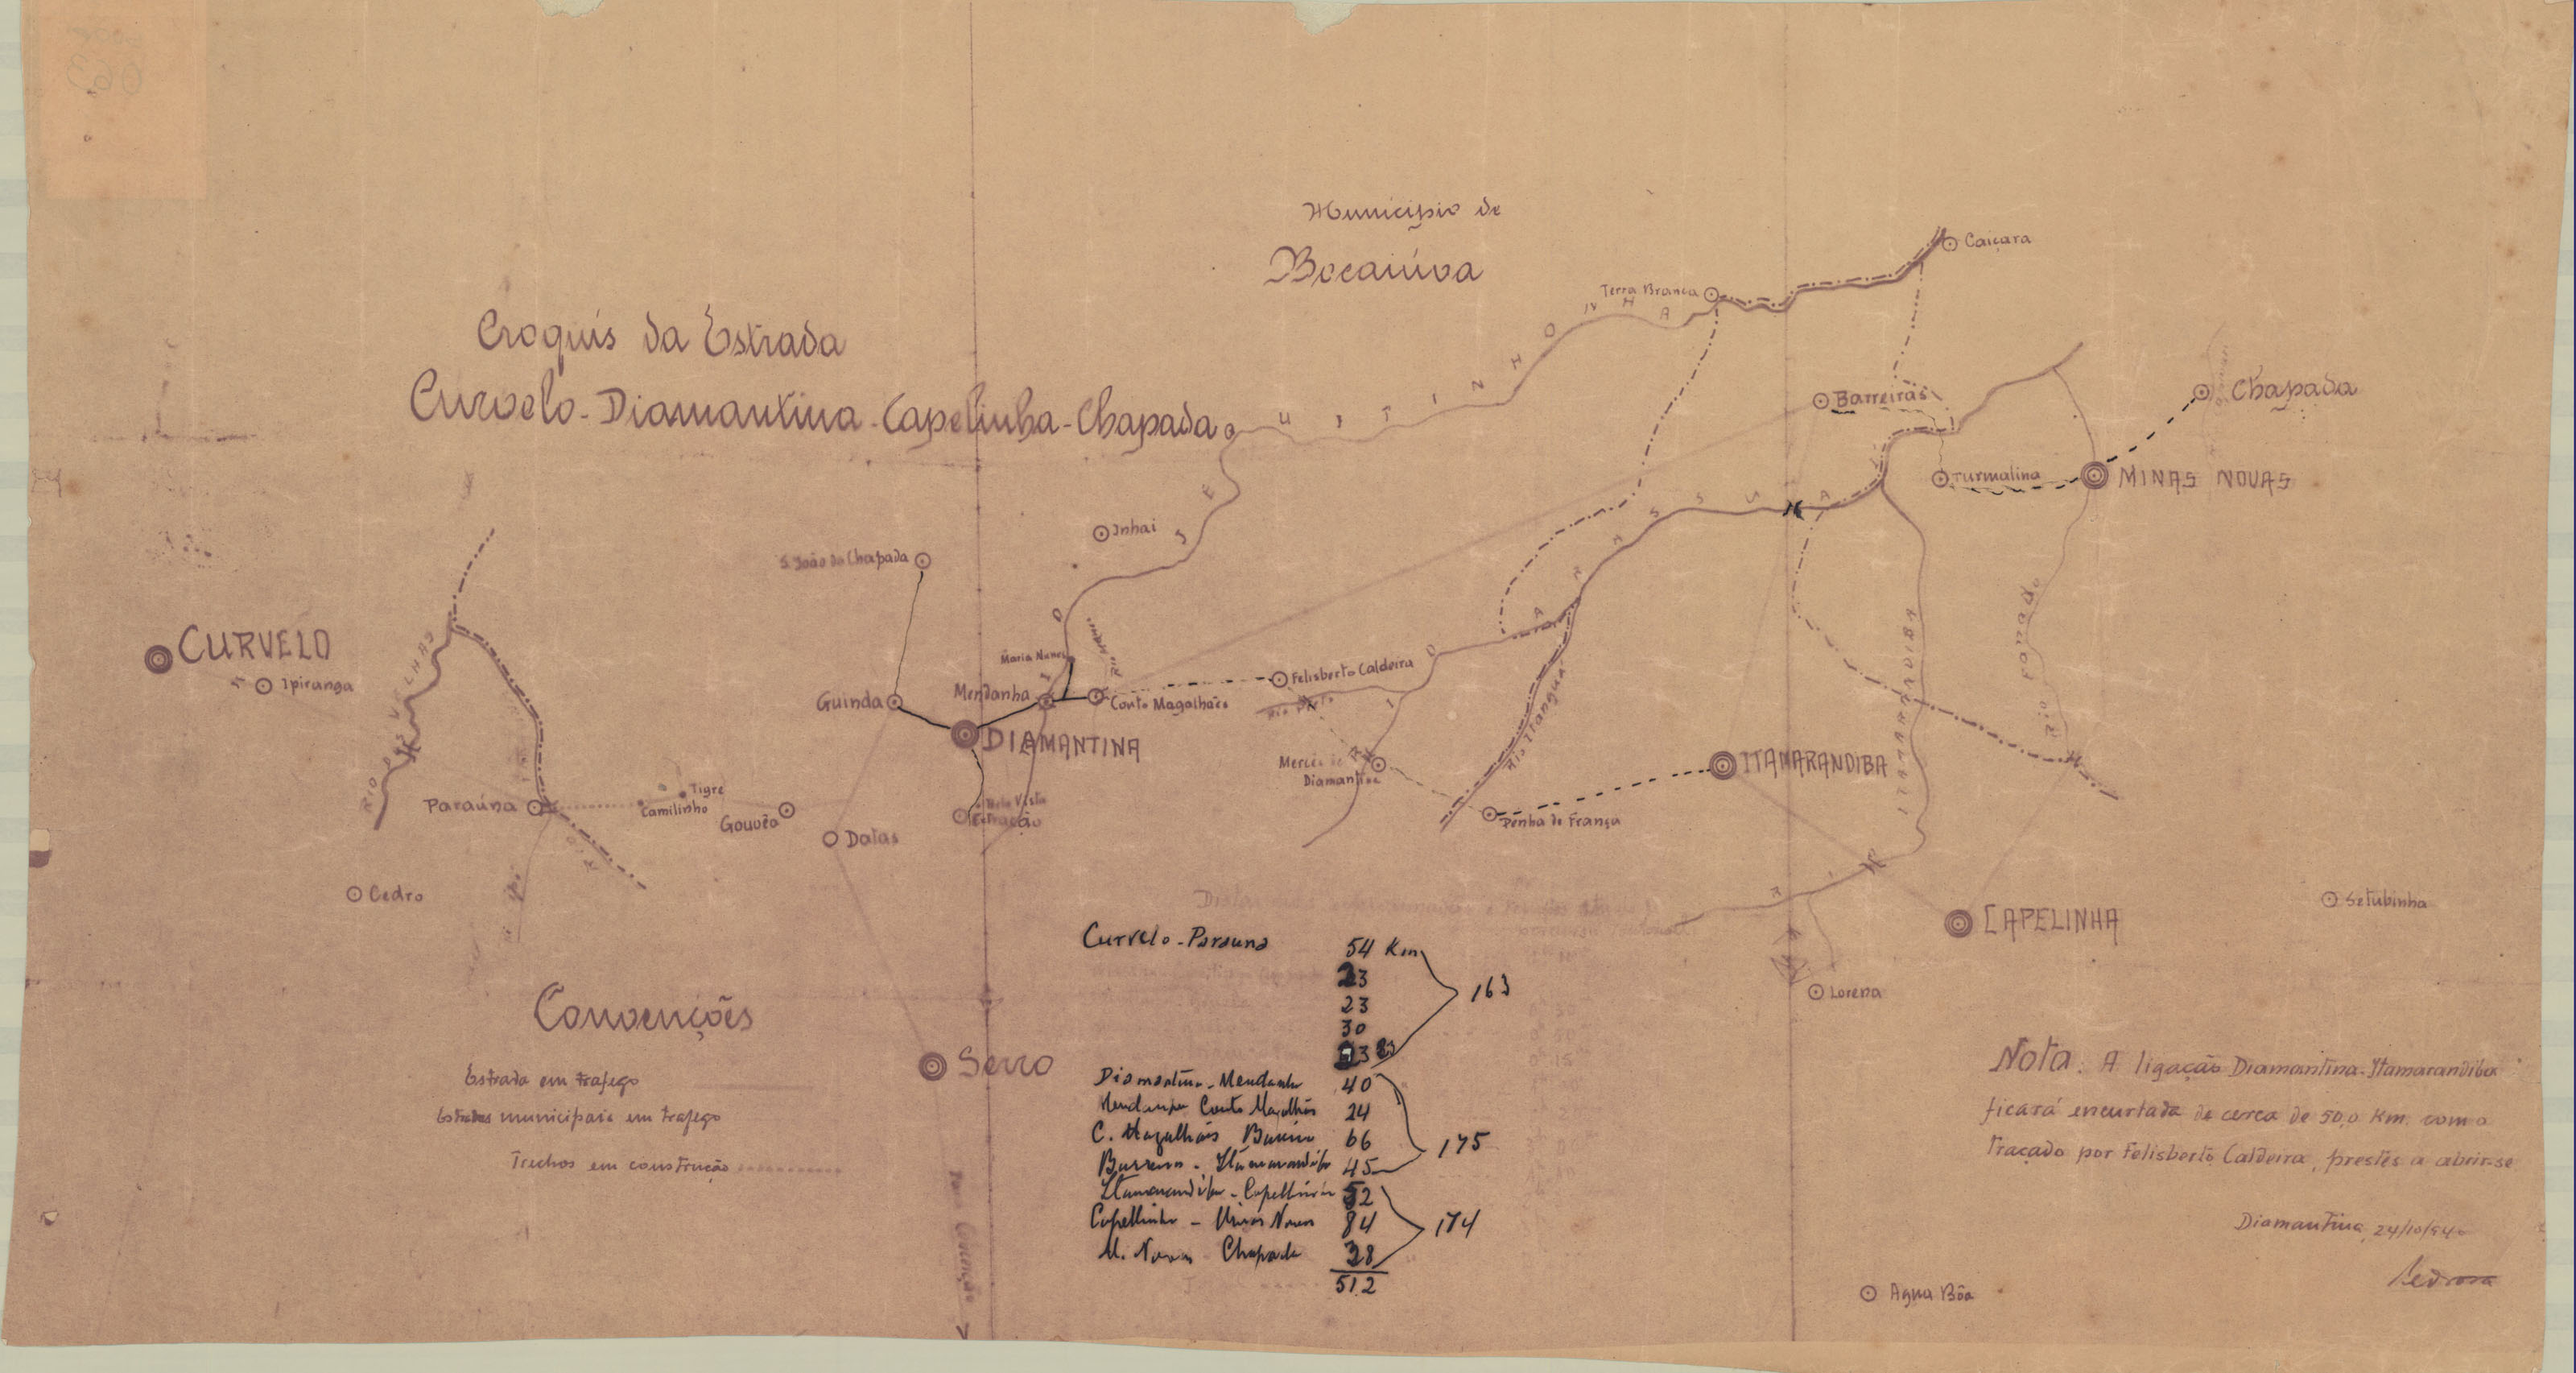 Município de
Bocaiúva
Croquis da Estrada
Curvelo-Diamantina-Capelinha-Chapada
Caiçara
Terra Branca
JEQUITINHONHA
Barreiras
Chapada
Turmalina
MINAS NOVAS
Inhai
S. João da Chapada
CURVELO
Ipiranga
RIO
Maria Nunes
Mendanha
Couto Magalhães
Guinda
DIAMANTINA
Felisberto Caldeira
Rio Preto
RIO ARASSUAÍ
Rio Itanguá
Mercês de
Diamantina
ITAMARANDIBA
ITAMARANDIBA
Rio Fanado
Penha de França
Paraúna
Tigre
Camilinho
Gouvêa
Datas
Bela Vista
Extração
Cedro
CAPELINHA
Setubinha
Lorena
Curvelo-Parauna 54 Km
23
23 163
30
Diamantina-Mendanha 40
Mendanha Couto Magalhães 24
C. Magalhães 66 175
Itamarandiba 45
Itamarandiba-Capellinha 52
Capellinha-Minas Novas 84 174
M. Novas Chapada 38
512
Convenções
Estrada em trafego
Estradas municipais em trafego
Trechos em construção
Serro
Nota: A ligação Diamantina-Itamarandiba
ficará encurtada de cerca de 50,0 Km. com o
traçado por Felisberto Caldeira, prestes a abrir-se
Diamantina, 24/10/940
Pedrosa
Agua Bôa